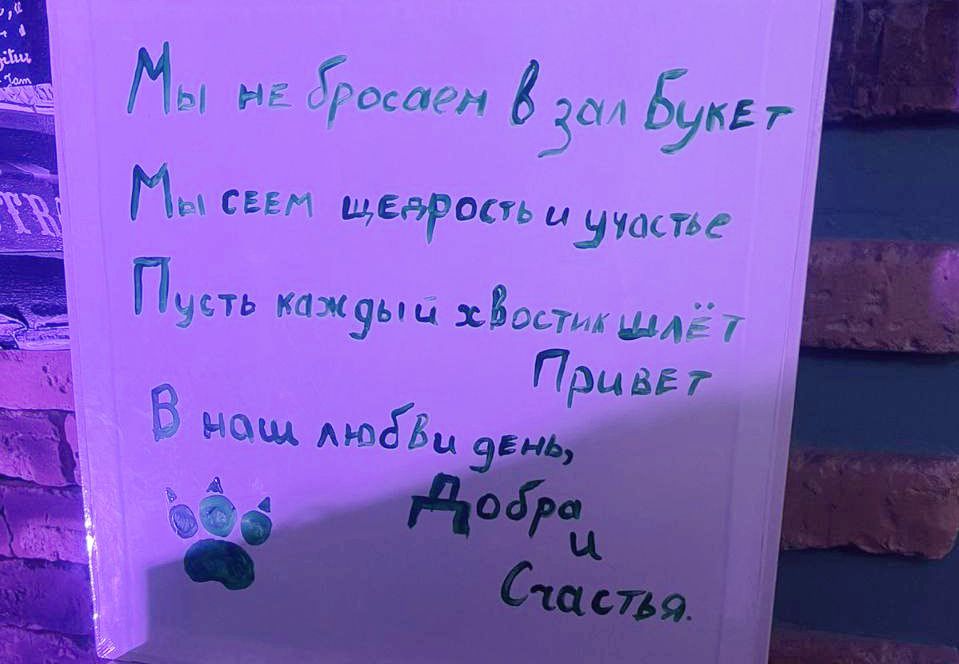 Мы не бросаем в зал Букет
Мы сеем щедрость и участье
Пусть каждый хвостик шлёт
Привет
В наш любви день,
Добра
и
Счастья.